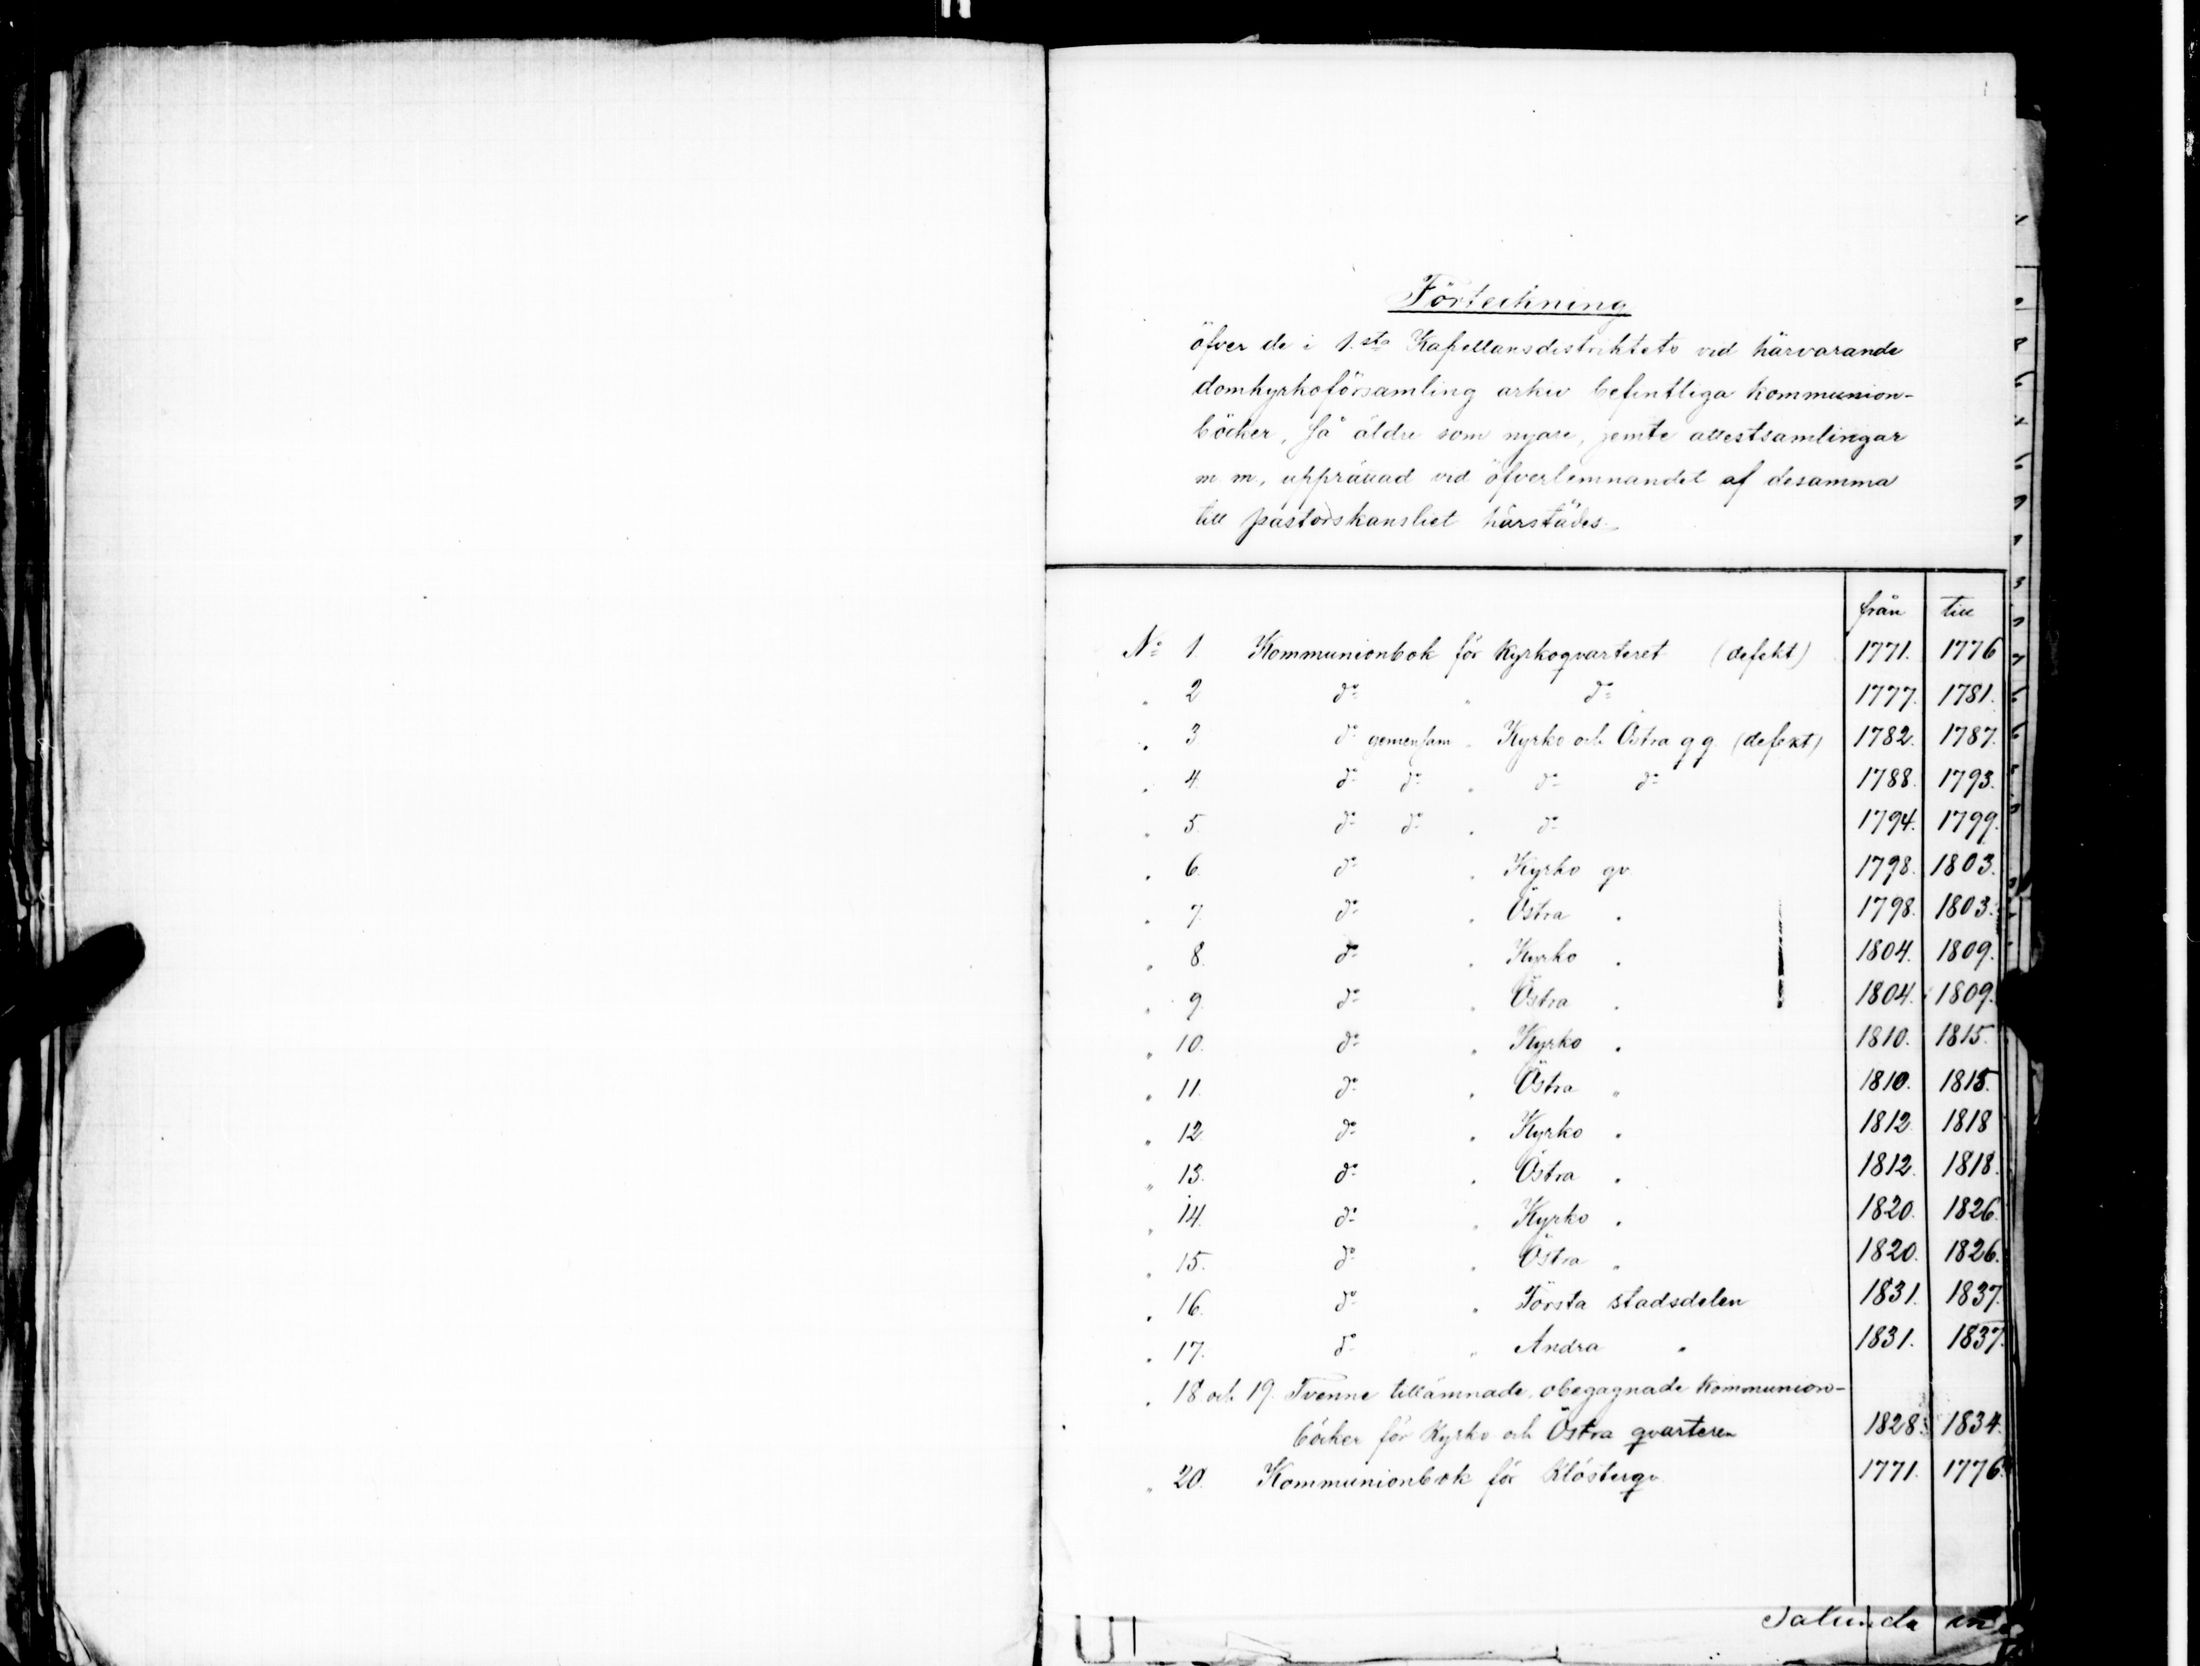 Förteckning
öfver de i 1.sta Kapellansdistriktets vid härvarande
domkyrkoförsamling arkiv befintliga kommunion-
böcker, så äldre som nyare, jemte attestsamlingar
m. m., upprättad vid öfverlemnandet af desamma
till pastorskansliet härstädes.
från till
No 1. Kommunionbok för Kyrkoqvarteret (defekt) 1771. 1776
" 2 do " do 1777. 1781.
" 3 do gemensam " Kyrko och Östra q q. (defekt) 1782. 1787.
" 4. do do " do do 1788. 1793.
" 5. do do " do 1794. 1799.
" 6. do " Kyrko qv. 1798. 1803.
" 7. do " Östra " 1798. 1803.
" 8. do " Kyrko " 1804. 1809.
" 9. do " Östra " 1804. 1809.
" 10. do " Kyrko " 1810. 1815.
" 11. do " Östra " 1810. 1815.
" 12. do " Kyrko " 1812. 1818
" 13. do " Östra " 1812. 1818.
" 14. do " Kyrko " 1820. 1826.
" 15. do " Östra " 1820. 1826.
" 16. do " Första stadsdelen 1831. 1837.
" 17. do " Andra " 1831. 1837.
" 18 och 19. Tvenne tillämnade, obegagnade kommunion-
böcker för Kyrko och Östra qvarteren 1828. 1834.
" 20. Kommunionbok för Klösterqv. 1771. 1776.